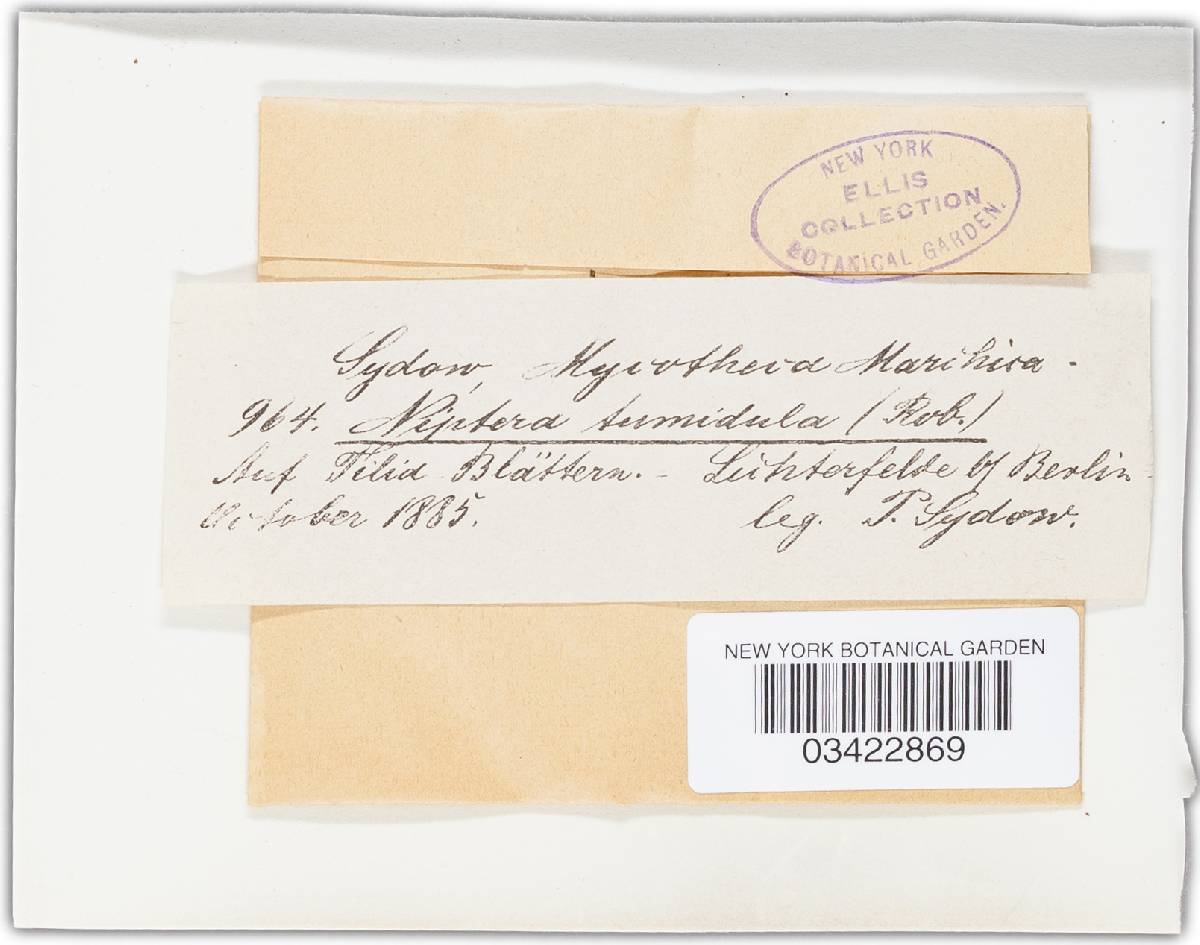 NEW YORK
ELLIS
COLLECTION
BOTANICAL GARDEN.
Sydow, Mycotheca Marchica.
964. Niptera tumidula (Rob.)
Auf Filia Blättern. - Lichterfelde b/ Berlin
October 1885. leg. P. Sydow.
NEW YORK BOTANICAL GARDEN
03422869